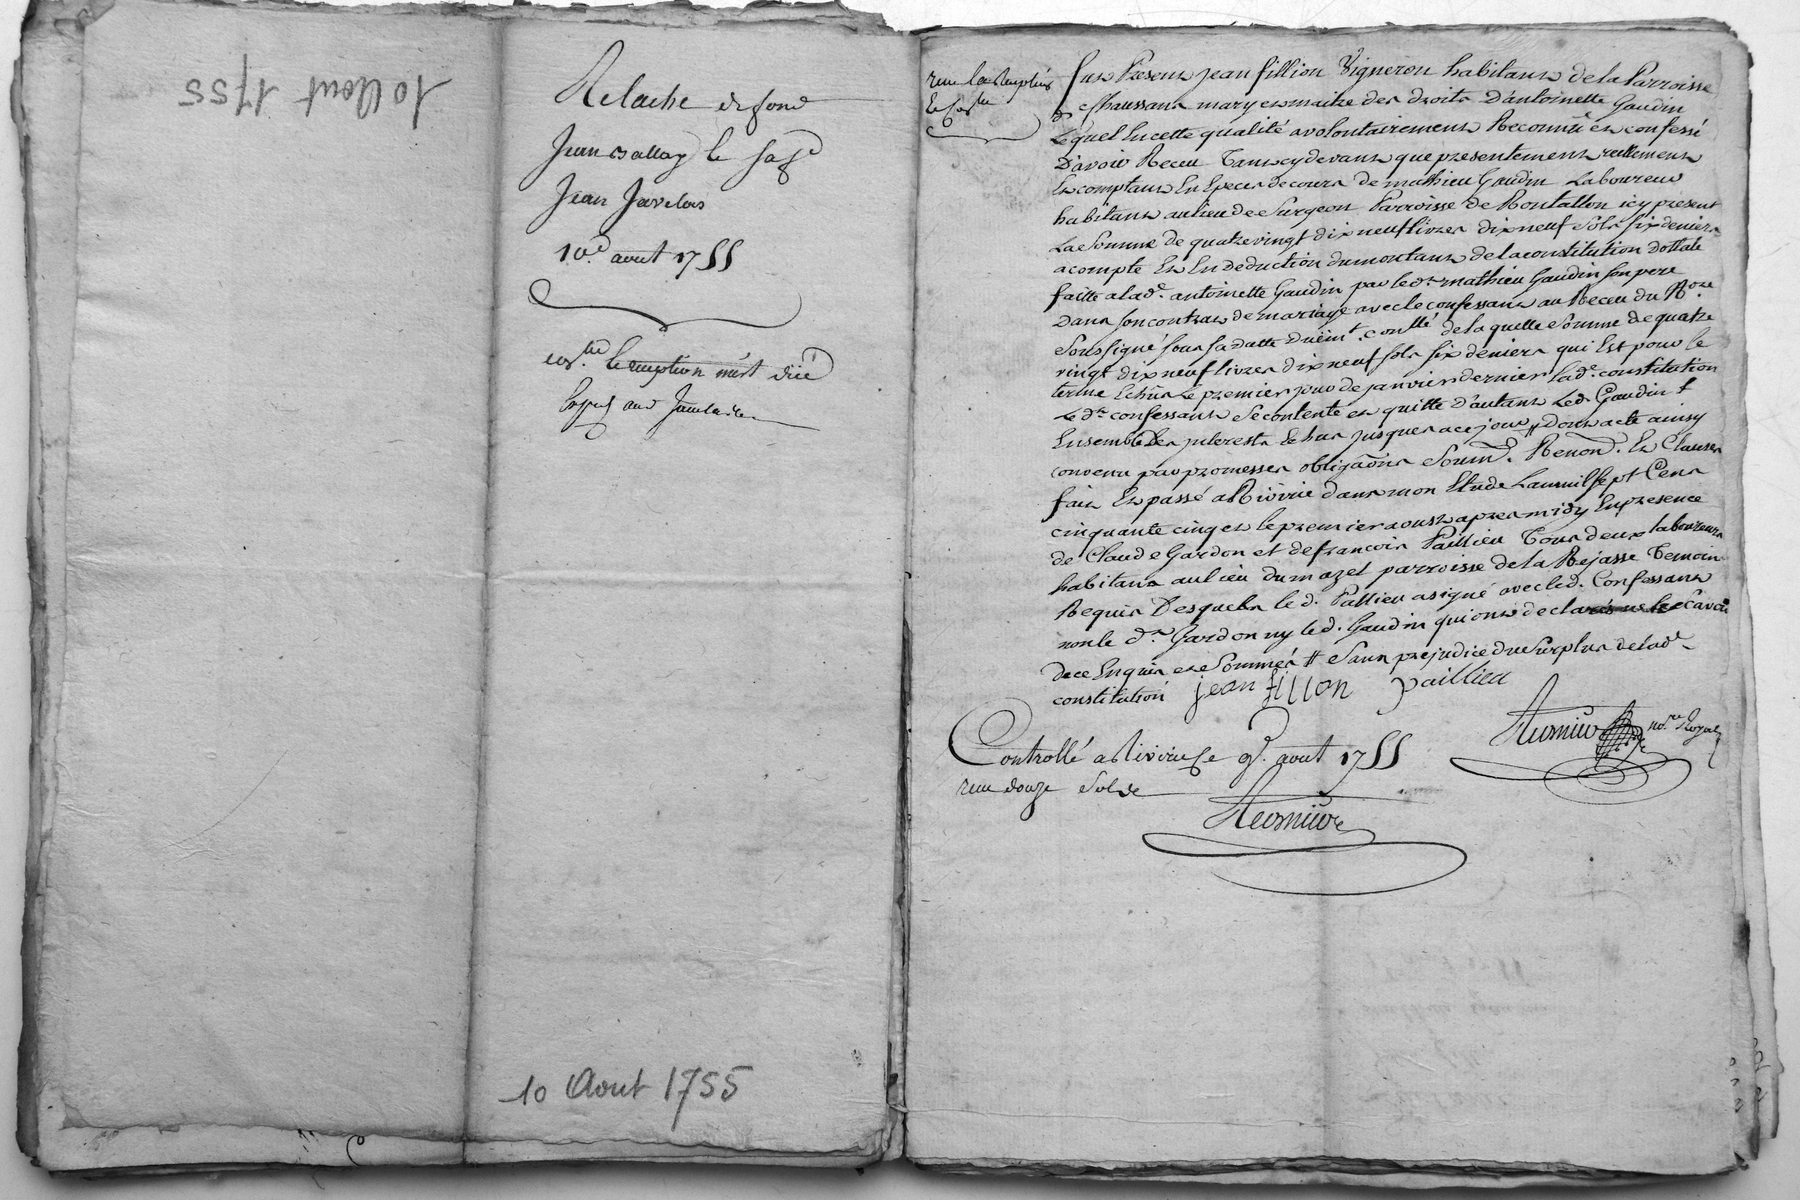 10 Aout 1755
Relache de fond
Jean Ballay le
Jean Javelas
10e. aout 1755
aux
10 Aout 1755
fut Présent jean fillion Vigneron habitant de la Parroisse
de Chaussant mary et maitre des droits D'antoinette Gaudin
Lequel En cette qualité a volontairement Reconnu et confessé
D'avoir Receu Tant cy devant que presentement reellement
Et comptant En Especes de cours de mathieu Gaudin Laboureur
habitant au lieu de Surgeon Parroisse de Rontallon icy present
La Somme de quatre vingt dix neuf livres dix neuf Sols six deniers
acompte Et En deduction du montant de la constitution dottale
faitte a lade. antoinette Gaudin par led. mathieu Gaudin son pere
Dans son contrat de mariage avec le confessant au Receu du No.re
Soussigné sous sa datte Duëmt. coñllé de laquelle Somme de quatre
vingt dix neuf livres dix neuf sols six deniers qui Est pour le
terme Echu Le premier jour de janvier dernier lade. constitution
Le dt. confessant se contente et quitte D'autant Led. Gaudin
Ensemble des interests Echus jusques a ce jour # Dont acte ainsy
convenu par promesses obligaons Soumd. Renond. Et Clauses
fait Et passé a Riverie dans mon Etude Lan mil sept Cens
cinquante cinq et le premier aoust apres midy En presence
de Claude Gardon et de francois Paillieu Tous deux laboureurs
habitans au lieu du mazel parroisse de la Rajasse Temoins
Requis Desquels le d. Pallieu a signé avec led. Confessant
non le dt. Gardon ny le d. Gaudin qui ont declaré ne le scavoir
de ce Enquis et Sommés # Sans prejudice du Surplus de lade.
constitution jean fillon paillieu
nore. Royal
Controllé a Riverie le 9e. aout 1755
reçu douze Sols